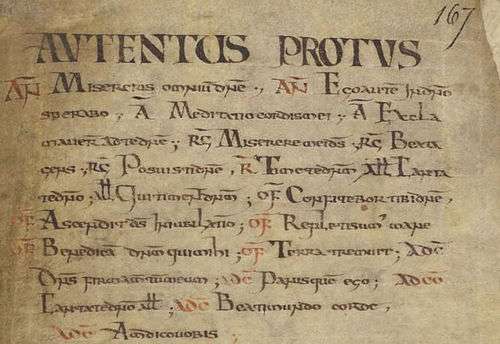 167
AVTENTUS PROTVS
AN Misereris omniū dne ., AN Ego autē in dno
sperabo ; A Meditatio cordis mei ; A Excla
ad te dne ; RG Miserere mei ds ; RG Beata
gens ; RG Posuisti dne , R Timete dnm All Laeta
te dno ; All Qui timent dnm ; OF Confitebor tibi dne ,
OF Ascendit ds in iubilatio ; OF Repleti sum' mane
OF Benedicā dnm qui mihi ; OF Terra tremuit ; AD CO
Dns firmamentum meum ; AD CO Panis quē ego ; AD CO
Laetate dno All ; AD CO Beati mundo corde ,
AD CO Am dico vobis ;